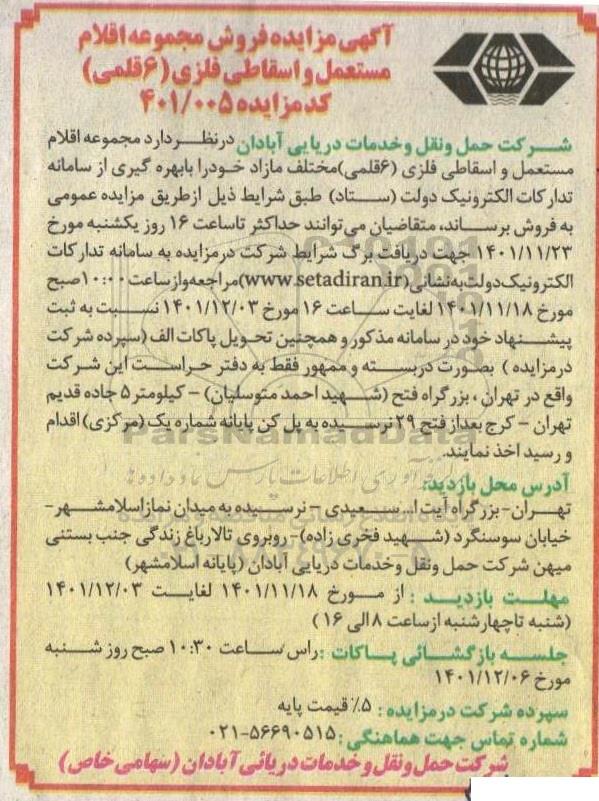 آگهی مزایده فروش مجموعه اقلام
مستعمل و اسقاطی فلزی (۶ قلمی)
کد مزایده ۴۰۱/۰۰۵
شرکت حمل ونقل وخدمات دریایی آبادان درنظر دارد مجموعه اقلام
مستعمل و اسقاطی فلزی (۶قلمی)مختلف مازاد خودرا بابهره گیری از سامانه
تدارکات الکترونیک دولت (ستاد) طبق شرایط ذیل ازطریق مزایده عمومی
به فروش برساند، متقاضیان می‌توانند حداکثر تاساعت ۱۶ روز یکشنبه مورخ
۱۴۰۱/۱۱/۲۳ جهت دریافت برگ شرایط شرکت درمزایده به سامانه تدارکات
الکترونیک‌دولت‌به‌نشانی(www.setadiran.ir)مراجعه‌وازساعت۱۰:۰۰صبح
مورخ ۱۴۰۱/۱۱/۱۸ لغایت ساعت ۱۶ مورخ ۱۴۰۱/۱۲/۰۳ نسبت به ثبت
پیشنهاد خود در سامانه مذکور و همچنین تحویل پاکات الف (سپرده شرکت
درمزایده ) بصورت دربسته و ممهور فقط به دفتر حراست این شرکت
واقع در تهران ، بزرگراه فتح (شهید احمد متوسلیان) - کیلومتر ۵ جاده قدیم
تهران - کرج بعداز فتح ۲۹ نرسیده به پل کن پایانه شماره یک (مرکزی) اقدام
و رسید اخذ نمایند.
ParsNamadData
آدرس محل بازدید:
تهران-بزرگراه آیت ا... سعیدی - نرسیده به میدان نماز اسلامشهر-
خیابان سوسنگرد (شهید فخری زاده)- روبروی تالار باغ زندگی جنب بستنی
میهن شرکت حمل ونقل وخدمات دریایی آبادان (پایانه اسلامشهر)
مهلت بازدید : از مورخ ۱۴۰۱/۱۱/۱۸ لغایت ۱۴۰۱/۱۲/۰۳
(شنبه تاچهارشنبه ازساعت ۸ الی ۱۶ )
جلسه بازگشائی پاکات :راس ساعت ۱۰:۳۰ صبح روز شنبه
مورخ ۱۴۰۱/۱۲/۰۶
سپرده شرکت درمزایده : ۵٪ قیمت پایه
شماره تماس جهت هماهنگی: ۰۲۱-۵۶۶۹۰۵۱۵
شرکت حمل ونقل وخدمات دریائی آبادان (سهامی خاص)